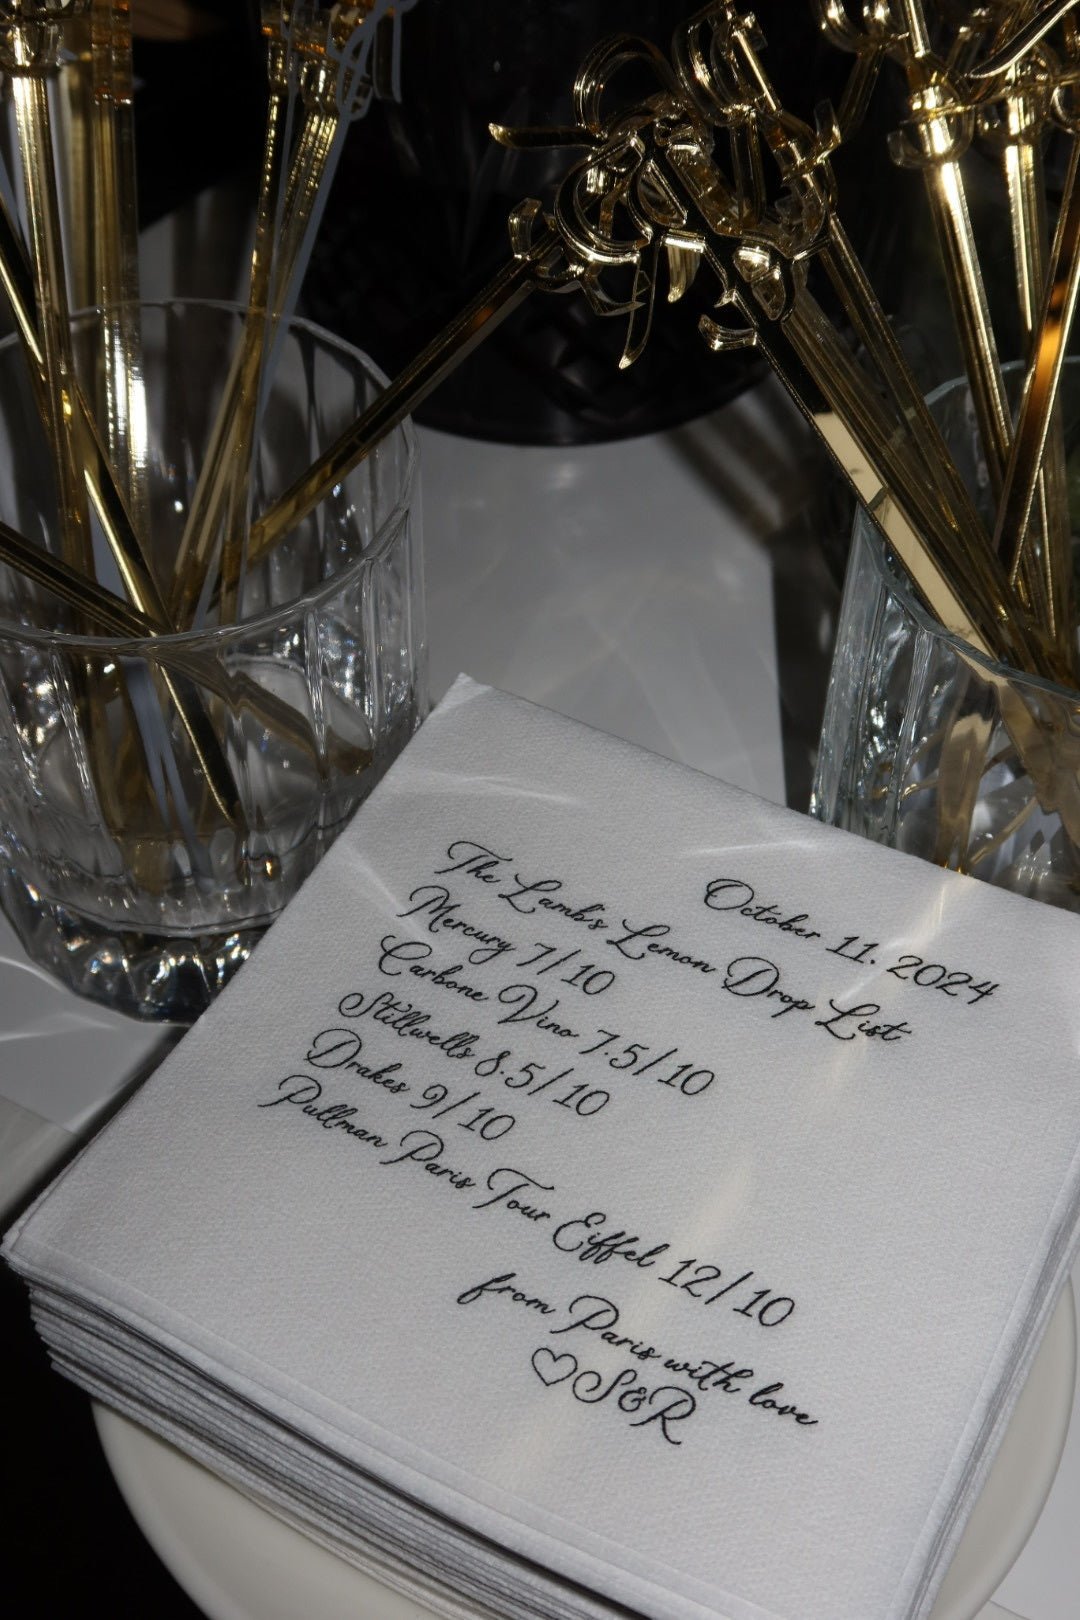 October 11, 2024
The Lamb's Lemon Drop List
Mercury 7/10
Carbone Vino 7.5/10
Stillwells 8.5/10
Drakes 9/10
Pullman Paris Tour Eiffel 12/10
from Paris with love
♡S&R